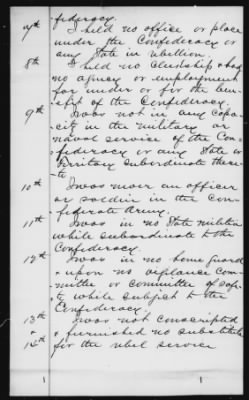 federacy.
7th I held no office or place
under the Confederacy or
any State in rebellion
8th I held no Clerkship & had
no agency or employment
for under or for the ben-
efit of the Confederacy.
9th I was not in any Capa-
city in the military or
naval service of the Con-
federacy or any State or
Territory subordinate there-
to
10th I was never an officer
or soldier in the Con-
federate Army.
11th I was in no State militia
while subordinate to the
Confederacy
12th I was in no home guard
& upon no vigilance Com-
mittee or committee of safe-
ty while subject to the
Confederacy
13th I was not conscripted
& & furnished no substitute
14th for the rebel service